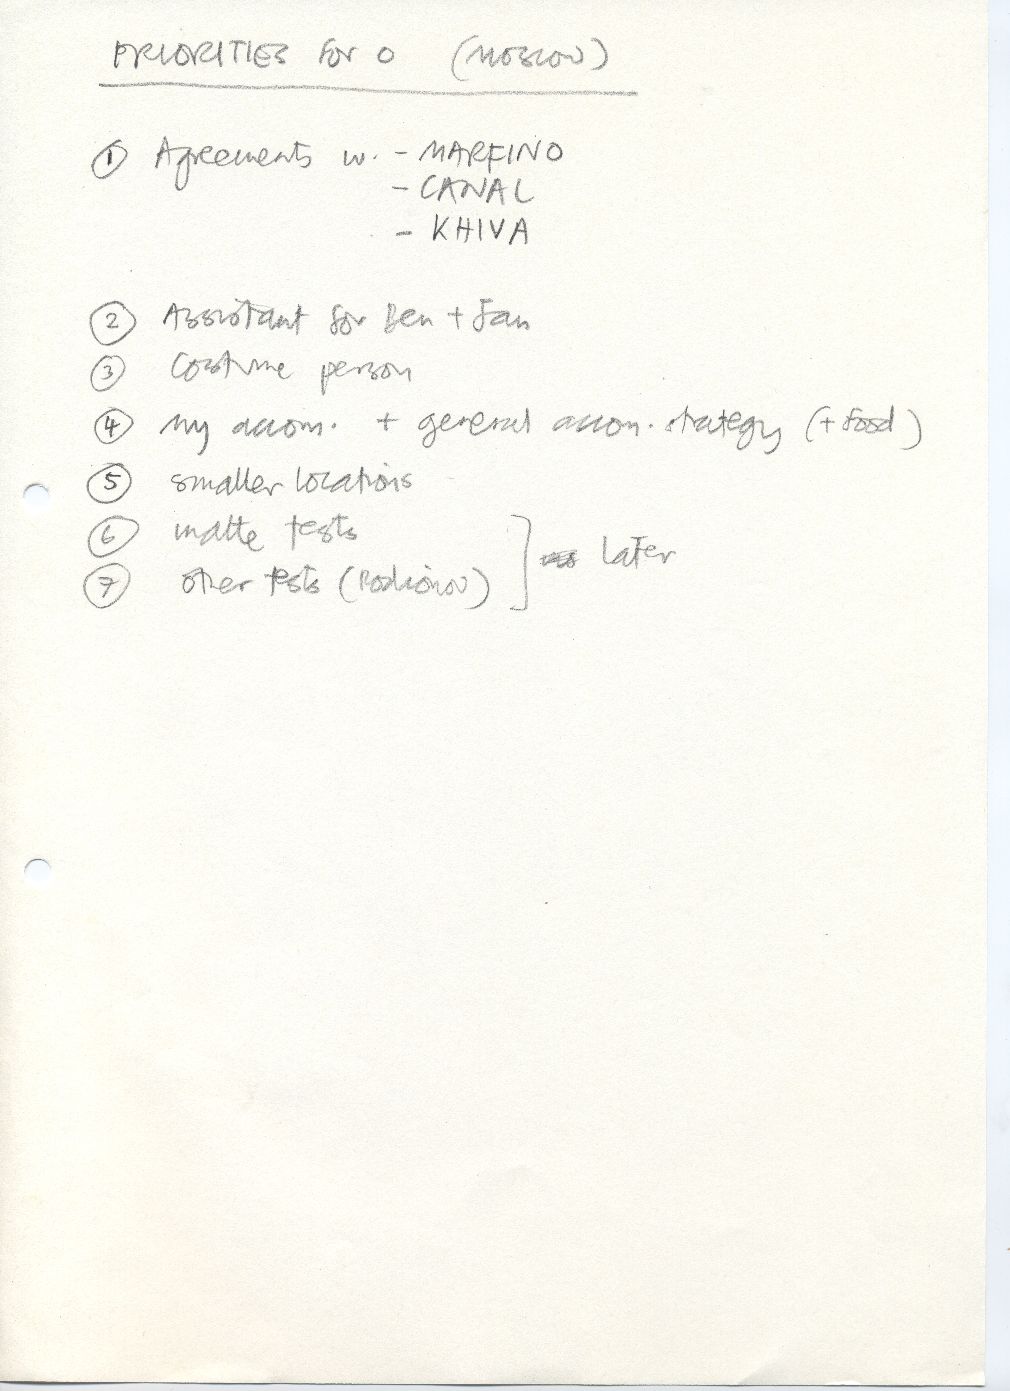 PRIORITIES FOR O (MOSCOW)
① Agreements w. - MARFINO
- CANAL
- KHIVA
② Assistant for Ben + Jan
③ Costume person
④ my accom. + general accom. strategy (+ food)
⑤ smaller locations
⑥ matte tests
⑦ other tests (Rodionov) ] Later